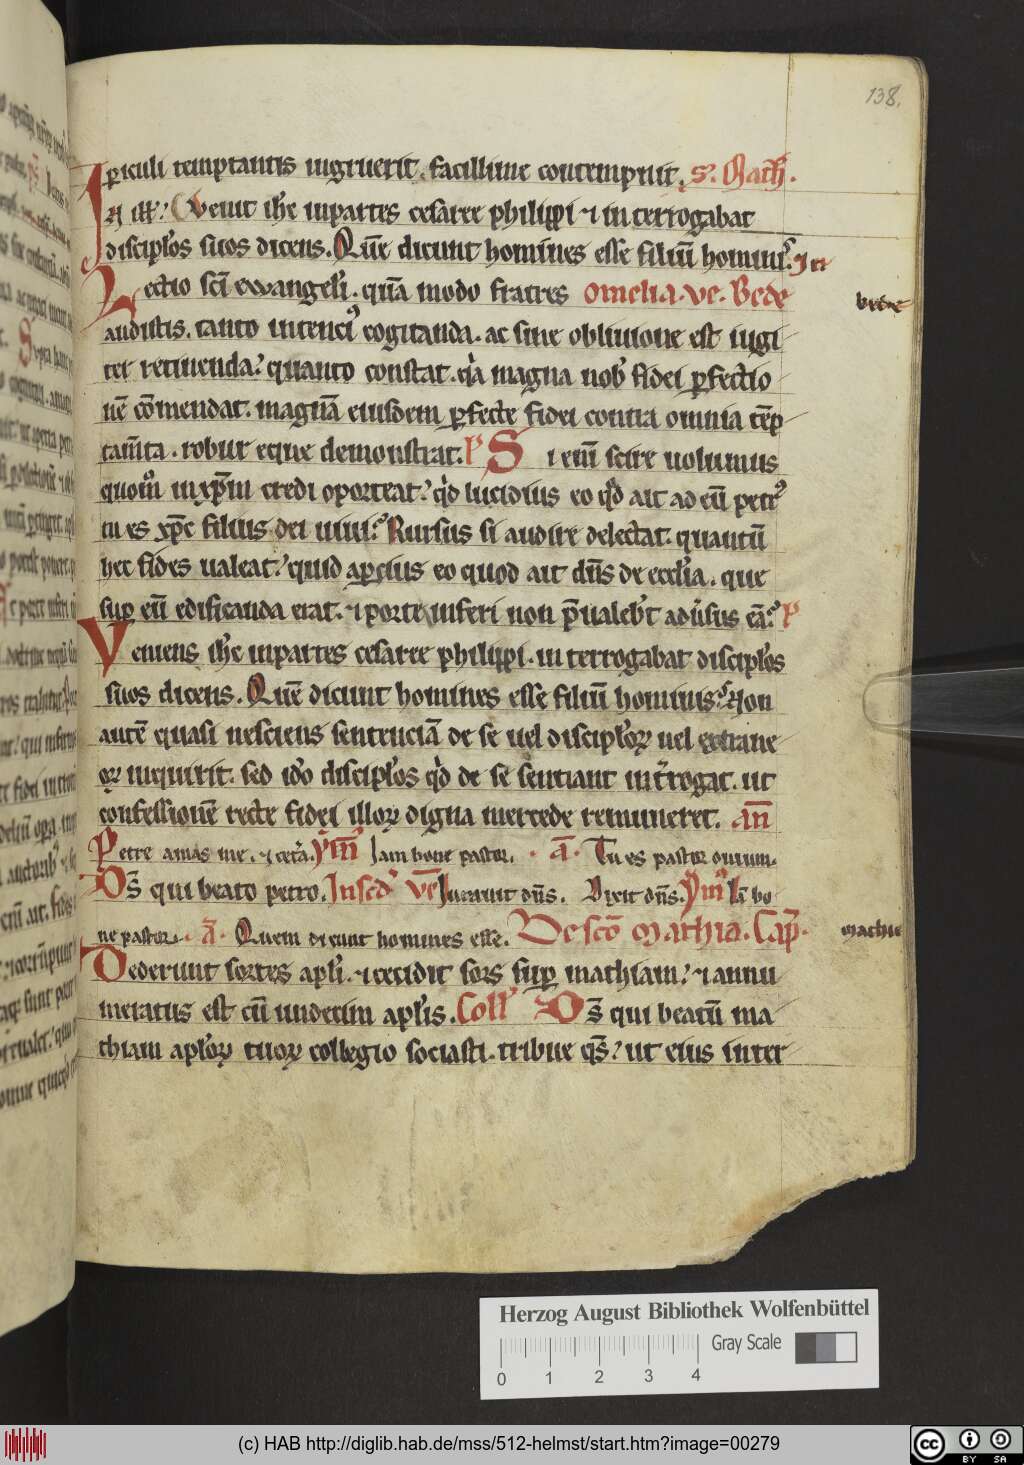 138.
periculi temptantis ingruerit. facillime contempnit. S. Math.
In illo. Venit ihc in partes cesaree philippi ⁊ interrogabat
discipl'os suos dicens. Quē dicunt homines esse filiū hominis. In
Lectio sc̄i ewangelii. quā modo fratres omelia. ve. Bede
bede
audistis. tanto intenci' cogitanda. ac sine obliuione est iugi
ter retinenda? quanto constat. q̇a magna nob' fidei ꝑfectio
nē cōmendat. magnā eiusdem ꝑfecte fidei contra omnia tēp
tam̄ta. robur eque demonstrat. P Si enī scire uolumus
quom̊ in xp̄m credi oporteat? q̇d lucidius eo q̇d ait ad eū petr'
tu es xp̄c filius dei uiui? Rursus si audire delectat. quantū
hec fides ualeat? quid apcius eo quod ait dn̄s de eccl'ia. que
suꝑ eū edificanda erat. ⁊ porte inferi non p̄ualeb't adūsus eā? P
Veniens ih'c in partes cesaree philippi. interrogabat discipl'os
suos dicens. Quē dicunt homines esse filiū hominis? Non
autē quasi nesciens sentenciā de se uel discipl'oꝝ uel extrane
oꝝ inquirit. sed id'o discipl'os q̇d de se sentiant int'rogat. ut
confessionē recte fidei illoꝝ digna mercede remuneret. an̄
Petre amas me. ⁊ cet'a. ym̄' Iam bone pastor. a̅. Tu es pastor ouium.
Ds̄ qui beato petro. In scd' ve Iurauit dn̄s. Dixit dn̄s. ym̄' Iā bo
ne pastor. a̅. Quem dicunt homines esse. De sc̄o Mathia. Cap̄.
mathie
Dederunt sortes apl'i. ⁊ cecidit sors suꝑ mathiam? ⁊ annu
meratus est cū undecim apl'is. Coll' Ds̄ qui beatū ma
thiam apl'oꝝ tuoꝝ collegio sociasti. tribue qs̄? ut eius inter
Herzog August Bibliothek Wolfenbüttel
Gray Scale
0 1 2 3 4
(c) HAB http://diglib.hab.de/mss/512-helmst/start.htm?image=00279
cc BY SA